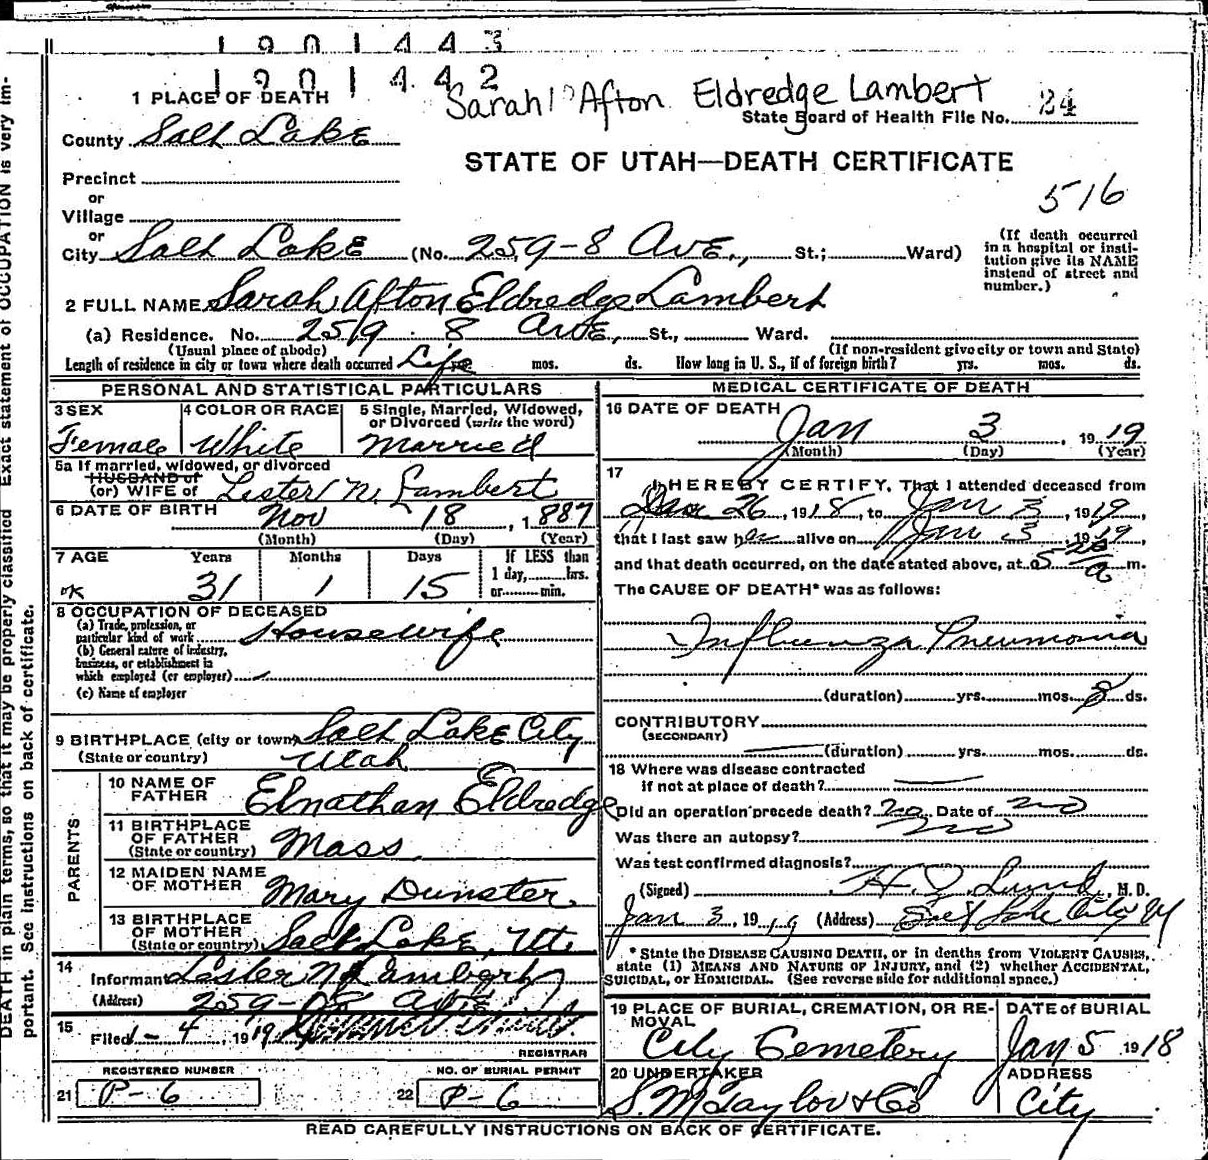 1901443
1901442
Sarah Afton Eldredge Lambert
1 PLACE OF DEATH
State Board of Health File No. 24
County Salt Lake
STATE OF UTAH—DEATH CERTIFICATE
Precinct
or
516
Village
or
City Salt Lake (No. 259-8 Ave., St.; Ward)
(If death occurred
in a hospital or insti-
tution give its NAME
instead of street and
number.)
2 FULL NAME Sarah Afton Eldredge Lambert
(a) Residence. No. 259 8 Ave, St., Ward.
(Usual place of abode)
(If non-resident give city or town and State)
Length of residence in city or town where death occurred Life mos. ds. How long in U. S., if of foreign birth? yrs. mos. ds.
PERSONAL AND STATISTICAL PARTICULARS
3 SEX
Female
4 COLOR OR RACE
White
5 Single, Married, Widowed,
or Divorced (write the word)
Married
5a If married, widowed, or divorced
HUSBAND of
(or) WIFE of Lester N. Lambert
6 DATE OF BIRTH Nov 18, 1887
(Month) (Day) (Year)
7 AGE Years Months Days
ok 31 1 15
If LESS than
1 day,........hrs.
or........min.
8 OCCUPATION OF DECEASED
(a) Trade, profession, or
particular kind of work Housewife
(b) General nature of industry,
business, or establishment in
which employed (or employer)
(c) Name of employer
9 BIRTHPLACE (city or town) Salt Lake City
(State or country) Utah
PARENTS
10 NAME OF
FATHER Elnathan Eldredge
11 BIRTHPLACE
OF FATHER
(State or country) Mass
12 MAIDEN NAME
OF MOTHER Mary Dunster
13 BIRTHPLACE
OF MOTHER
(State or country) Salt Lake, Ut.
14
Informant Lester N Lambert
(Address) 259-08 Ave
15
Filed 1-4, 1919
REGISTRAR
REGISTERED NUMBER
21 P-6
NO. OF BURIAL PERMIT
22 P-6
MEDICAL CERTIFICATE OF DEATH
16 DATE OF DEATH
Jan 3, 1919
(Month) (Day) (Year)
17
I HEREBY CERTIFY, That I attended deceased from
Dec 26, 1918, to Jan 3, 1919,
that I last saw her alive on Jan 3, 1919,
and that death occurred, on the date stated above, at 5 20 a m.
The CAUSE OF DEATH* was as follows:
Influenza Pneumonia
(duration) yrs. mos. 8 ds.
CONTRIBUTORY
(SECONDARY)
(duration) yrs. mos. ds.
18 Where was disease contracted
if not at place of death?
Did an operation precede death? no Date of no
Was there an autopsy? no
Was test confirmed diagnosis?
(Signed) Lund, M. D.
Jan 3, 1919 (Address) Salt Lake City Ut
* State the DISEASE CAUSING DEATH, or in deaths from VIOLENT CAUSES,
state (1) MEANS AND NATURE OF INJURY, and (2) whether ACCIDENTAL,
SUICIDAL, or HOMICIDAL. (See reverse side for additional space.)
19 PLACE OF BURIAL, CREMATION, OR RE-
MOVAL
City Cemetery
DATE of BURIAL
Jan 5 1918
20 UNDERTAKER
S. M. Taylor & Co
ADDRESS
City
READ CAREFULLY INSTRUCTIONS ON BACK OF CERTIFICATE.
DEATH in plain terms, so that it may be properly classified Exact statement of OCCUPATION is very im-
portant. See instructions on back of certificate.